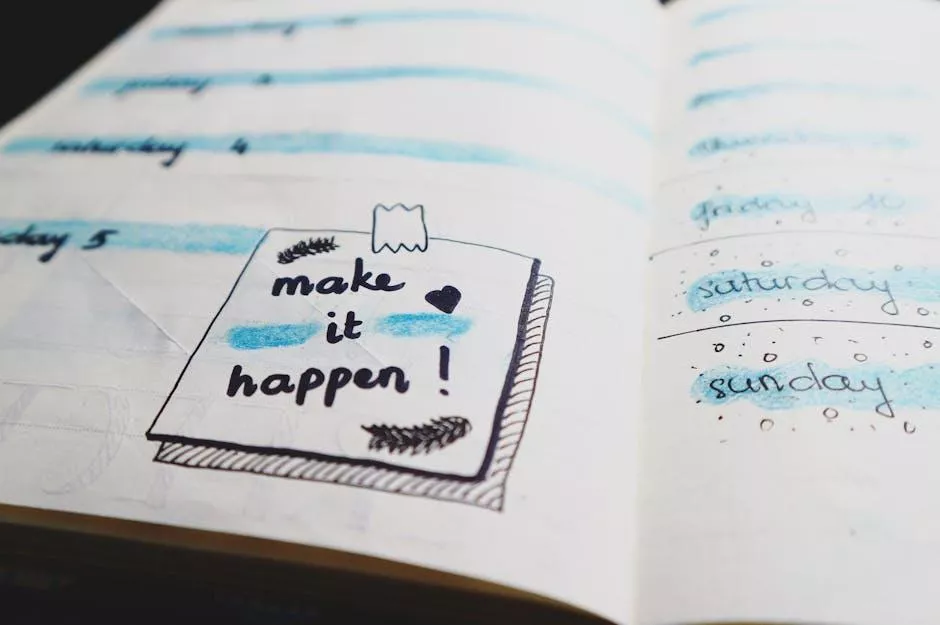 friday
saturday 4
day 5
make
it
happen!
friday
saturday
sunday